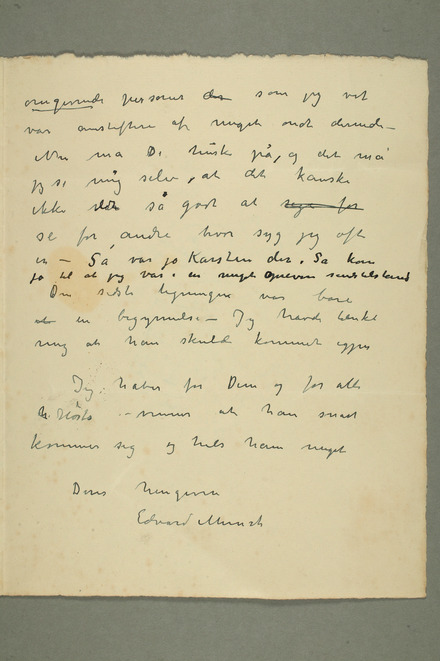 omgivende personer der som jeg vet
var anstiftere af meget ondt dernede –
Men må De huske på, og det må
jeg si mig selv, at det kanske
ikke så godt at sige for
se for andre hvor syg jeg ofte
er – Så var jo Karsten der. Så kom
jo til at jeg var i en meget opreven sindstilstand
Den sidste tegningen var bare
en begynnelse – Jeg havde tænkt
mig at han skulde kommet igjen
Jeg håber for Dem og for alle
venner at han snart
kommer sig og hils ham meget
Deres hengivne
Edvard Munch